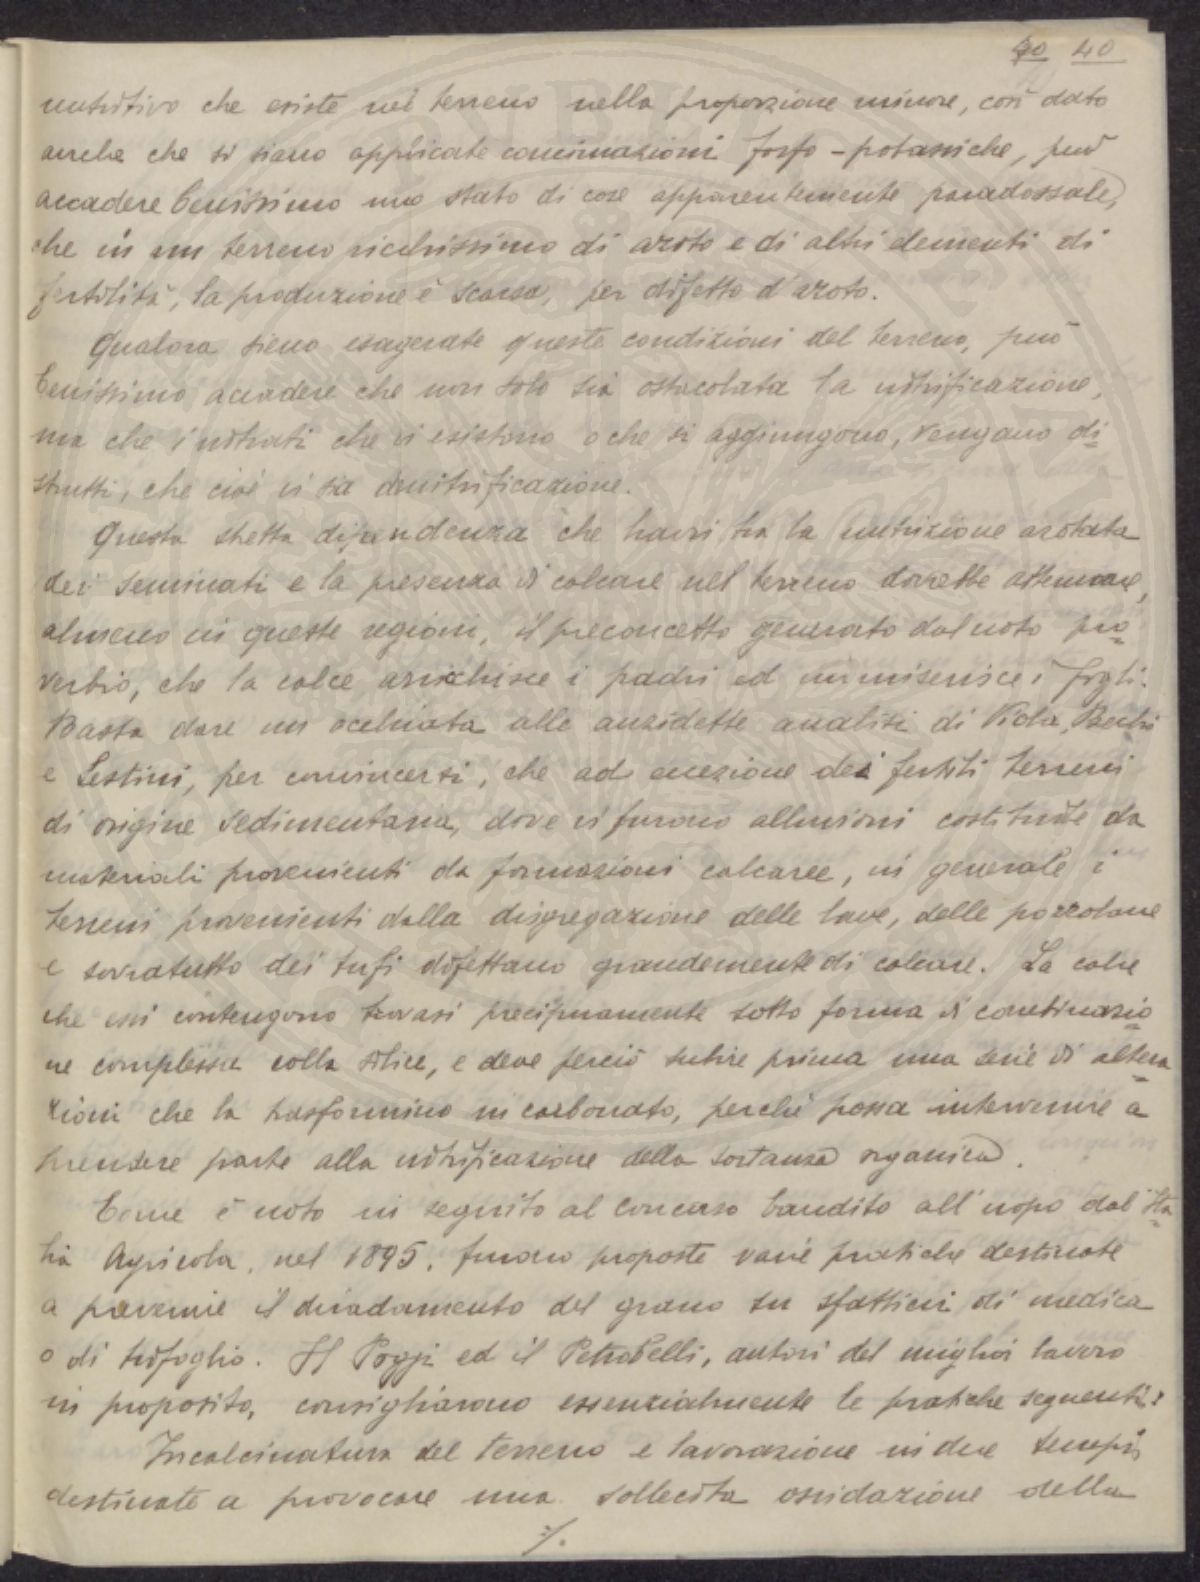 40 40
nutritivo che esiste nel terreno nella proporzione minore, così dato
anche che si siano applicate concimazioni fosfo-potassiche, può
accadere benissimo uno stato di cose apparentemente paradossale,
che in un terreno ricchissimo di azoto e di altri elementi di
fertilità, la produzione è scarsa, per difetto d'azoto.
Qualora sieno esagerate queste condizioni del terreno, può
benissimo accadere che non solo sia ostacolata la nitrificazione,
ma che i nitrati che vi esistono o che si aggiungono, vengano di=
strutti, che cioè vi sia denitrificazione.
Questa stretta dipendenza che havvi tra la nutrizione azotata
dei seminati e la presenza di calcare nel terreno dovrebbe attenuare,
almeno in queste regioni, il preconcetto generato dal noto pro=
verbio, che la calce arricchisce i padri ed immiserisce i figli.
Basta dare un occhiata alle anzidette analisi di Viola, Bechi
e Sestini, per convincersi, che ad eccezione dei fertili terreni
di origine sedimentaria, dove vi furono alluvioni costituite da
materiali provenienti da formazioni calcaree, in generale i
terreni provenienti dalla disgregazione delle lave, delle pozzolane
e sovratutto dei tufi difettano grandemente di calcare. La calce
che essi contengono trovasi precipuamente sotto forma di combinazio=
ne complessa colla silice, e deve perciò subire prima una serie di altera=
zioni che la trasformino in carbonato, perchè possa intervenire a
prendere parte alla nitrificazione della sostanza organica.
Come è noto in seguito al concorso bandito all'uopo dal'Ita=
lia Agricola, nel 1895, furono proposte varie pratiche destinate
a prevenire il diradamento del grano su sfatticci di medica
o di trifoglio. Il Poggi ed il Petrobelli, autori del miglior lavoro
in proposito, consigliarono essenzialmente le pratiche seguenti:
Incalcinatura del terreno e lavorazione in due tempi,
destinate a provocare una sollecita ossidazione della
./.